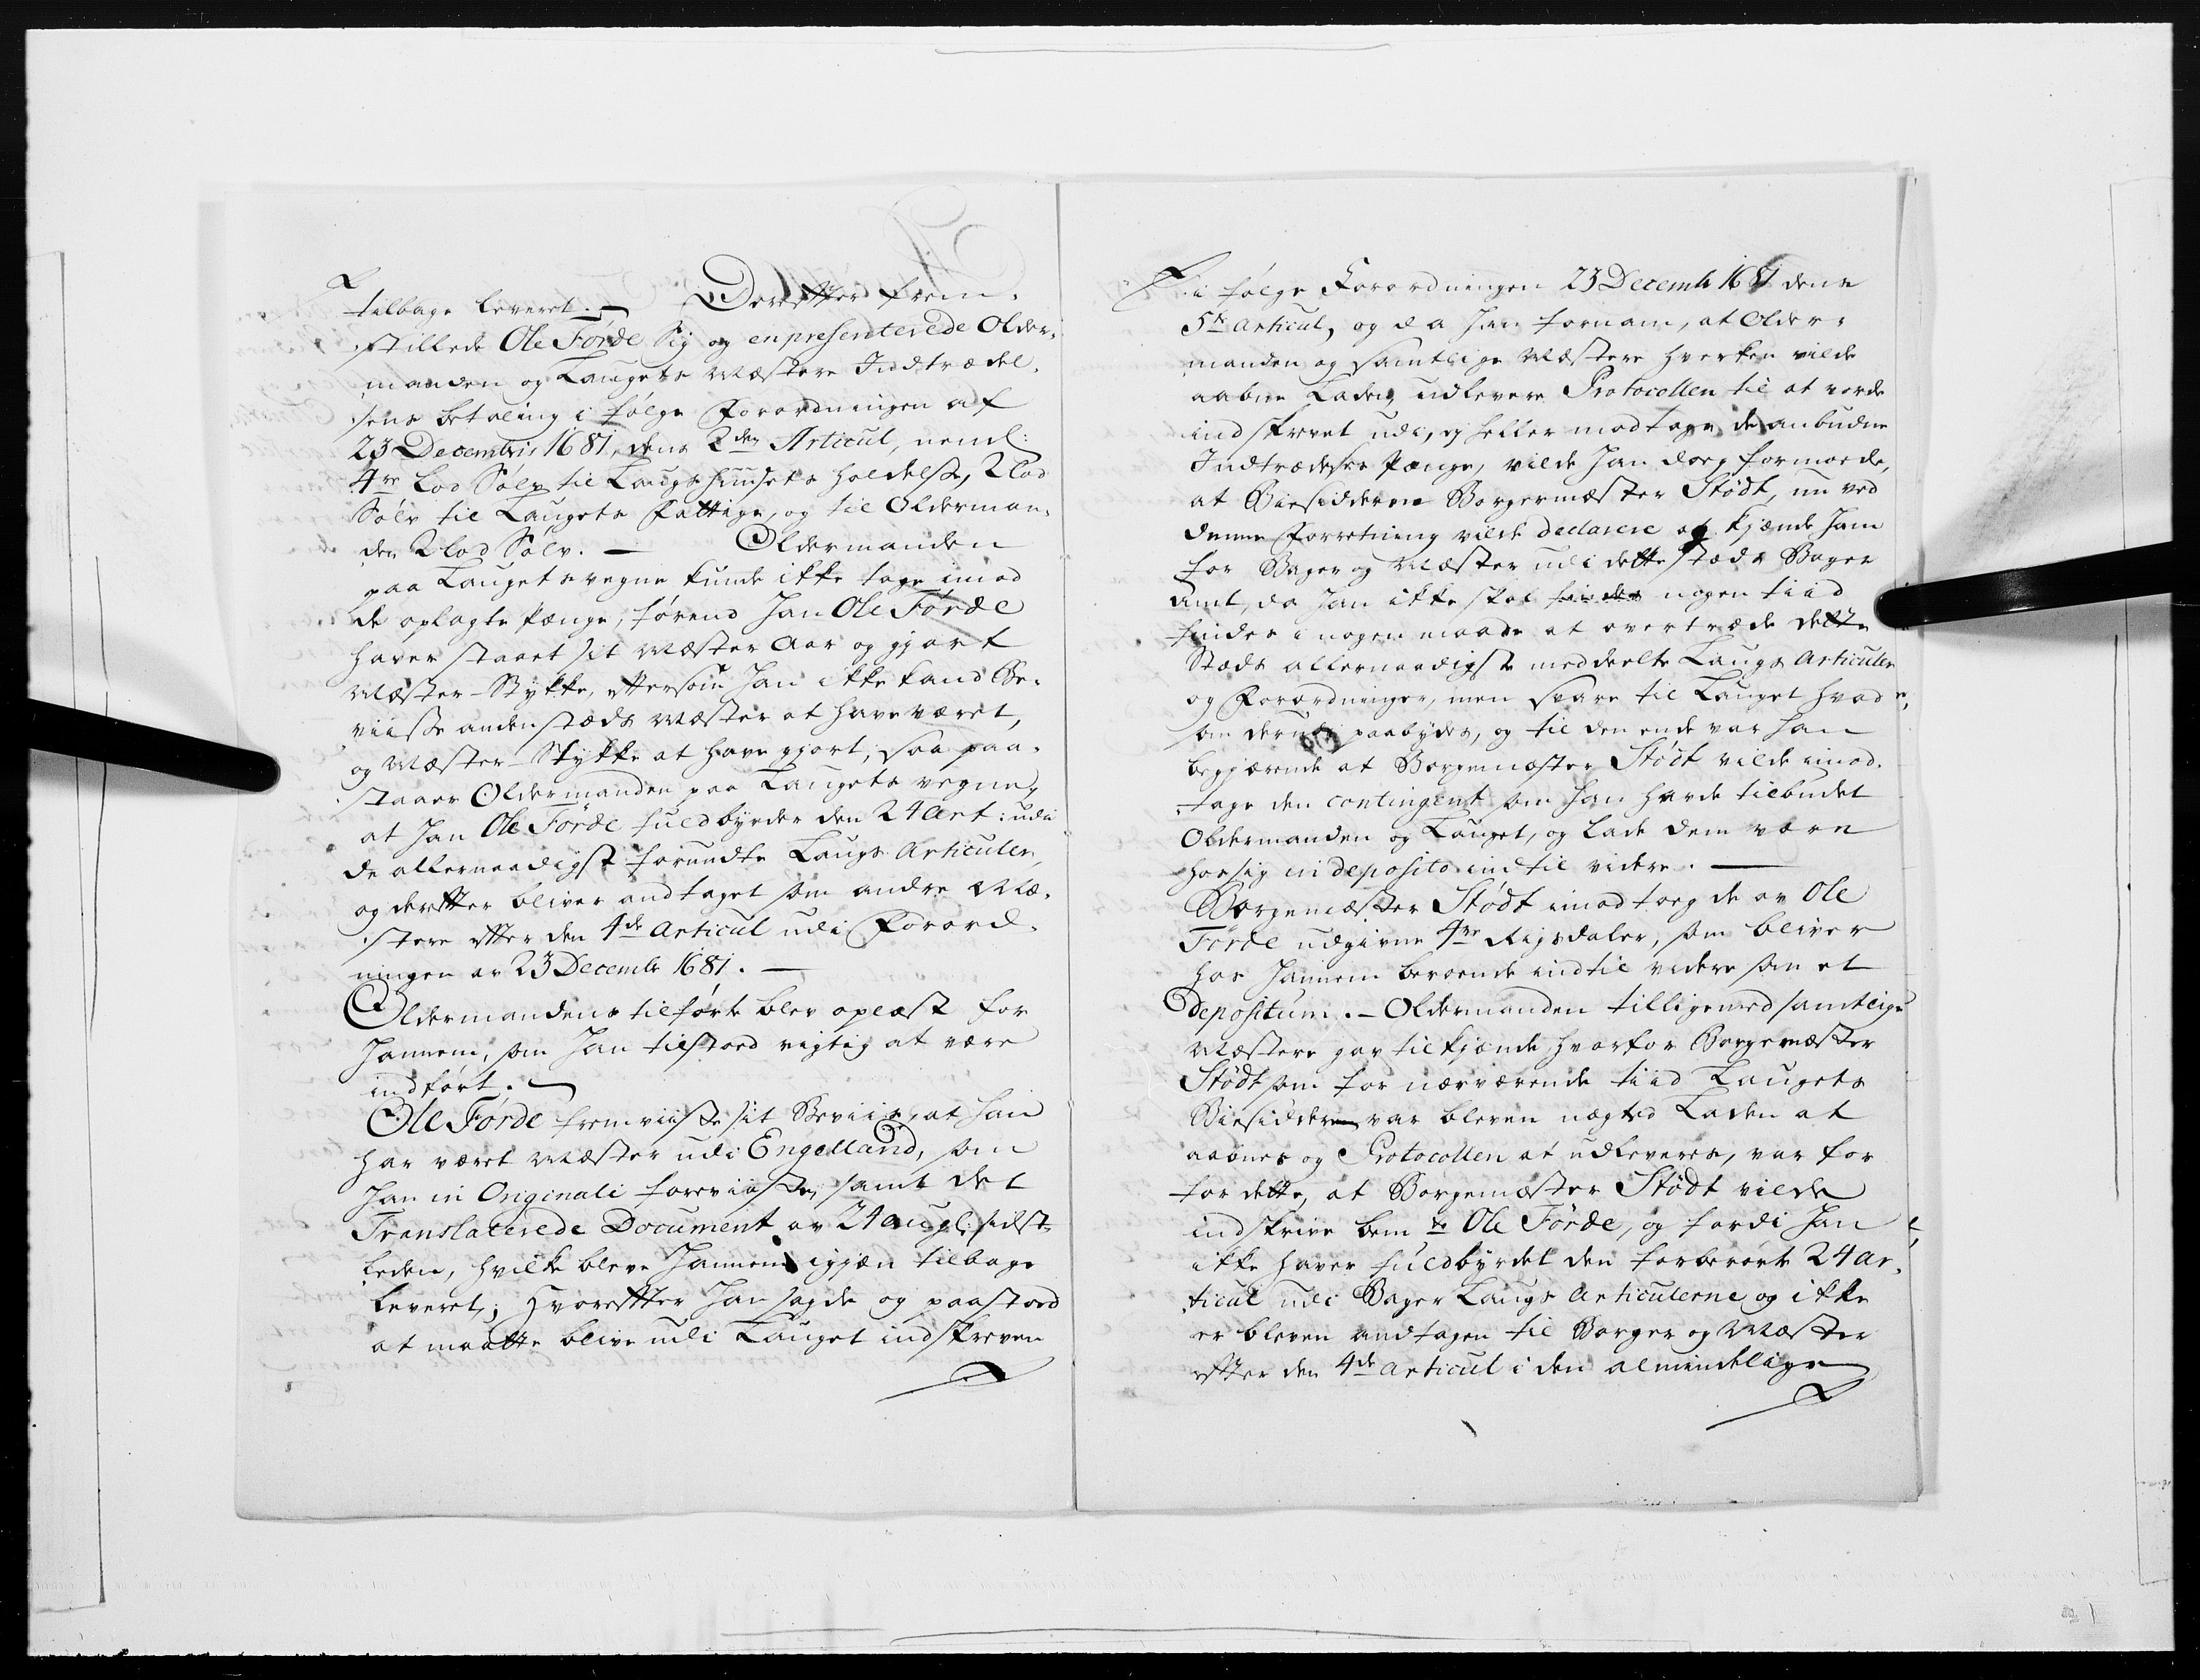 tilbage leveret. — Derefter frem-
stillede Ole Förde Sig og enpresenterede Older-
manden og Laugets Mæstere Indtrædel-
sens betaling i følge Forordningen af
23 Decembris 1681, dens 2den Articul, neml:
4re Lod Sölv til Laugs Huusets holdelse, 2 lod
Sölv til Laugets Fattige, og til Olderman-
den 2 lod Sölv. — Oldermanden
paa Laugets vegne kunde ikke tage imod
de oplagte Penge, førend han Ole Förde
haver staaet sit Mæster Aar og gjort
Mæster-Stykke, eftersom han ikke kand Be-
viisse andenstæds Mæster at have været,
og Mæster-Stykke at have gjort, saa paa-
staaer Oldermanden paa Laugets vegne,
at han Ole Förde fuldbyrder den 24 Art: udi
de allernaadigst forundte Laugs Articuler,
og derefter bliver andtaget som andre Mæ-
stere efter den 4de Articul udi Forord-
ningen av 23 Decembr 1681. —
Oldermandens tilförte blev oplæst for
hannem, som han tilstoed rigtig at være
indført. —
Ole Förde fremviiste sit Beviis, at han
har været Mæster udi Engelland, som
han in Originali foreviiste, samt det
Translaterede Document av 24 aug: sidst-
leden, hvilke bleve hannem igjæn tilbage
leveret; Hvorefter han sagde og paastoed
at maatte blive udi Lauget indskreven
i følge Forordningen 23 Decembr 1681 dens
5te Articul, og da han fornam, at Older-
manden og samtlige Mæstere hverken vilde
aabne Laden, udlevere Protocollen til at vorde
indskrevet udi, ej heller modtage de anbudne
Indtrædelses Penge, vilde han dog formode,
at Biesidderen Borgermæster Stödt, nu ved
denne Forretning vilde declarere og kjænde ham
for Bager og Mæster udi dette stæds Bager
Amt, da han ikke skal findes nogen tiid
findes i nogen maade at overtræde dette
Stæds allernaadigste meddeelte Laugs Articuler
og Forordninger, men svare til Lauget hvad
som derudi paabydes, og til den ende var han
begjærende at Borgemæster Stödt vilde imod-
tage den contingent som han havde tilbudet
Oldermanden og Lauget, og lade dem være
hos sig in deposito indtil videre. —
Borgemæster Stödt imodtog de av Ole
Förde udgivne 4re Rigsdaler, som bliver
hos hannem beroende indtil videre som et
depositum. — Oldermanden tilligemed samtlige
Mæstere gav tilkjænde hvorfor Borgemæster
Stödt som for nærværende tiid Laugets
Biesiddere var bleven nægted Laden at
aabnes og Protocollen at udleveres, var for
for dette, at Borgemæster Stödt vilde
indskrive bemte Ole Förde, og fordi han
ikke haver fuldbyrdet den forberørte 24 ar-
ticul udi Bager Laugs Articulerne og ikke
er bleven andtagen til Borger og Mæster
efter den 4de Articul i den almindelige